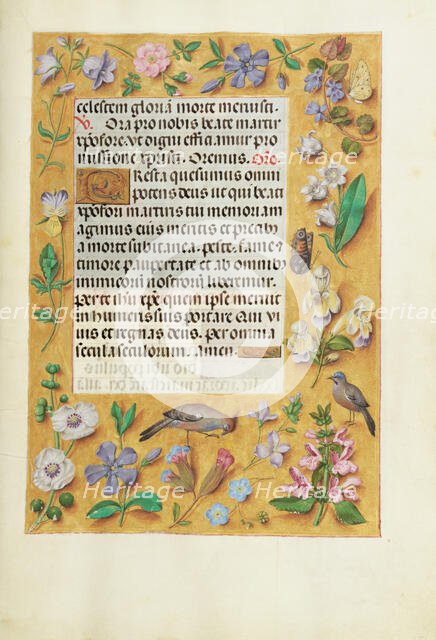 celestem gloriā morte meruisti.
V. Ora pro nobis beate martir
xpofore. vt digni efficiamur pro
missione xpristi. Oremus. Oro
Presta quesumus omni
potens deus ut qui beati
xpofori martiris tui memoriam
agimus eius meritis et precibus
a morte subitanea. peste. fame.
timore. paupertate et ab omnibus
inimicorū nostrorū liberemur.
Per te ihū xpē quem ipse meruit
in humeris suis portare Qui vi
uis et regnas deus. Per omnia
secula seculorum. Amen.
Heritage
Heritage
Heritage
Heritage
Heritage
Heritage